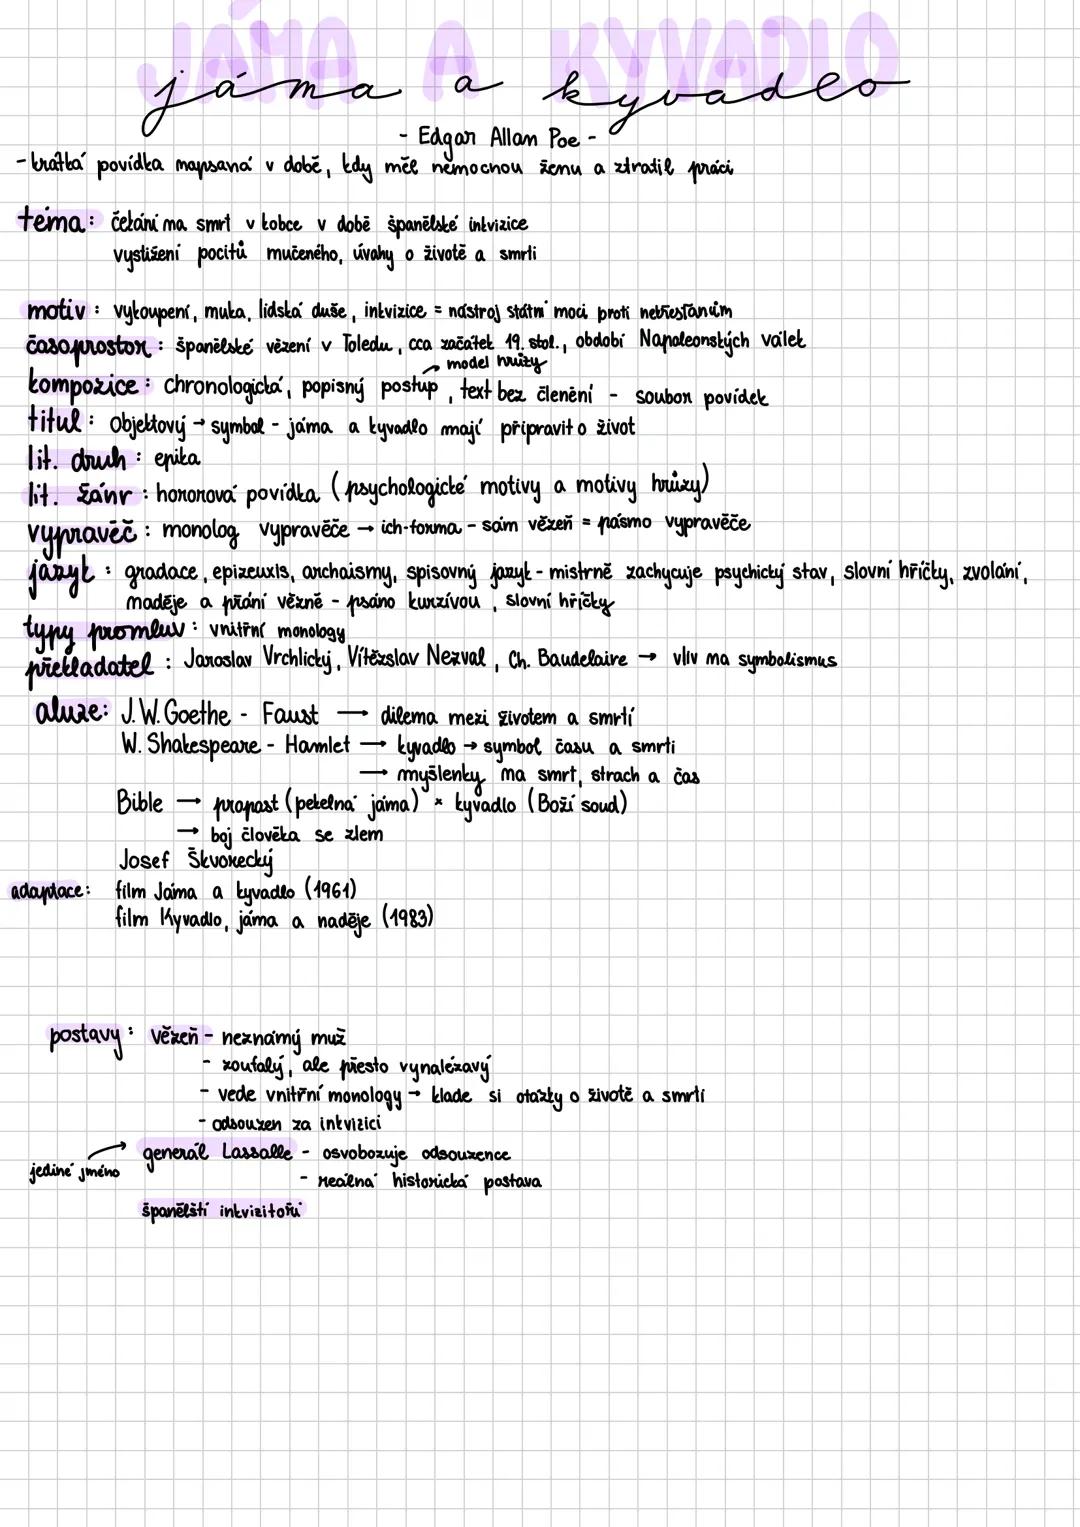 JÁMA A KYVADLO
jáma a kyvadlo
- Edgar Allan Poe -
- krátká povídka napsaná v době, kdy měl nemocnou ženu a ztratil práci
téma: čekání na smrt v kobce v době španělské inkvizice
vystižení pocitů mučeného, úvahy o životě a smrti
motiv: vykoupení, muka, lidská duše, inkvizice = nástroj státní moci proti nekřesťanům
časoprostor: španělské vězení v Toledu, cca začátek 19. stol., období Napoleonských válek
model hrůzy
kompozice: chronologická, popisný postup, text bez členění - soubor povídek
titul: objektový → symbol - jáma a kyvadlo mají připravit o život
lit. druh: epika
lit. žánr: hororová povídka (psychologické motivy a motivy hrůzy)
vypravěč: monolog vypravěče → ich-forma - sám vězeň = pásmo vypravěče
jazyk: gradace, epizeuxis, archaismy, spisovný jazyk - mistrně zachycuje psychický stav, slovní hříčky, zvolání,
naděje a přání vězně - psáno kurzívou, slovní hříčky
typy promluv: vnitřní monology
překladatel: Jaroslav Vrchlický, Vítězslav Nezval, Ch. Baudelaire → vliv na symbolismus
aluze: J. W. Goethe - Faust → dilema mezi životem a smrtí
W. Shakespeare - Hamlet → kyvadlo → symbol času a smrti
→ myšlenky na smrt, strach a čas
Bible → propast (pekelná jáma) × kyvadlo (Boží soud)
→ boj člověka se zlem
Josef Škvorecký
adaptace: film Jáma a kyvadlo (1961)
film Kyvadlo, jáma a naděje (1983)
postavy: vězeň - neznámý muž
- zoufalý, ale přesto vynalézavý
- vede vnitřní monology → klade si otázky o životě a smrti
- odsouzen za inkvizici
generál Lassalle - osvobozuje odsouzence
jediné jméno
- reálná historická postava
španělští inkvizitoři